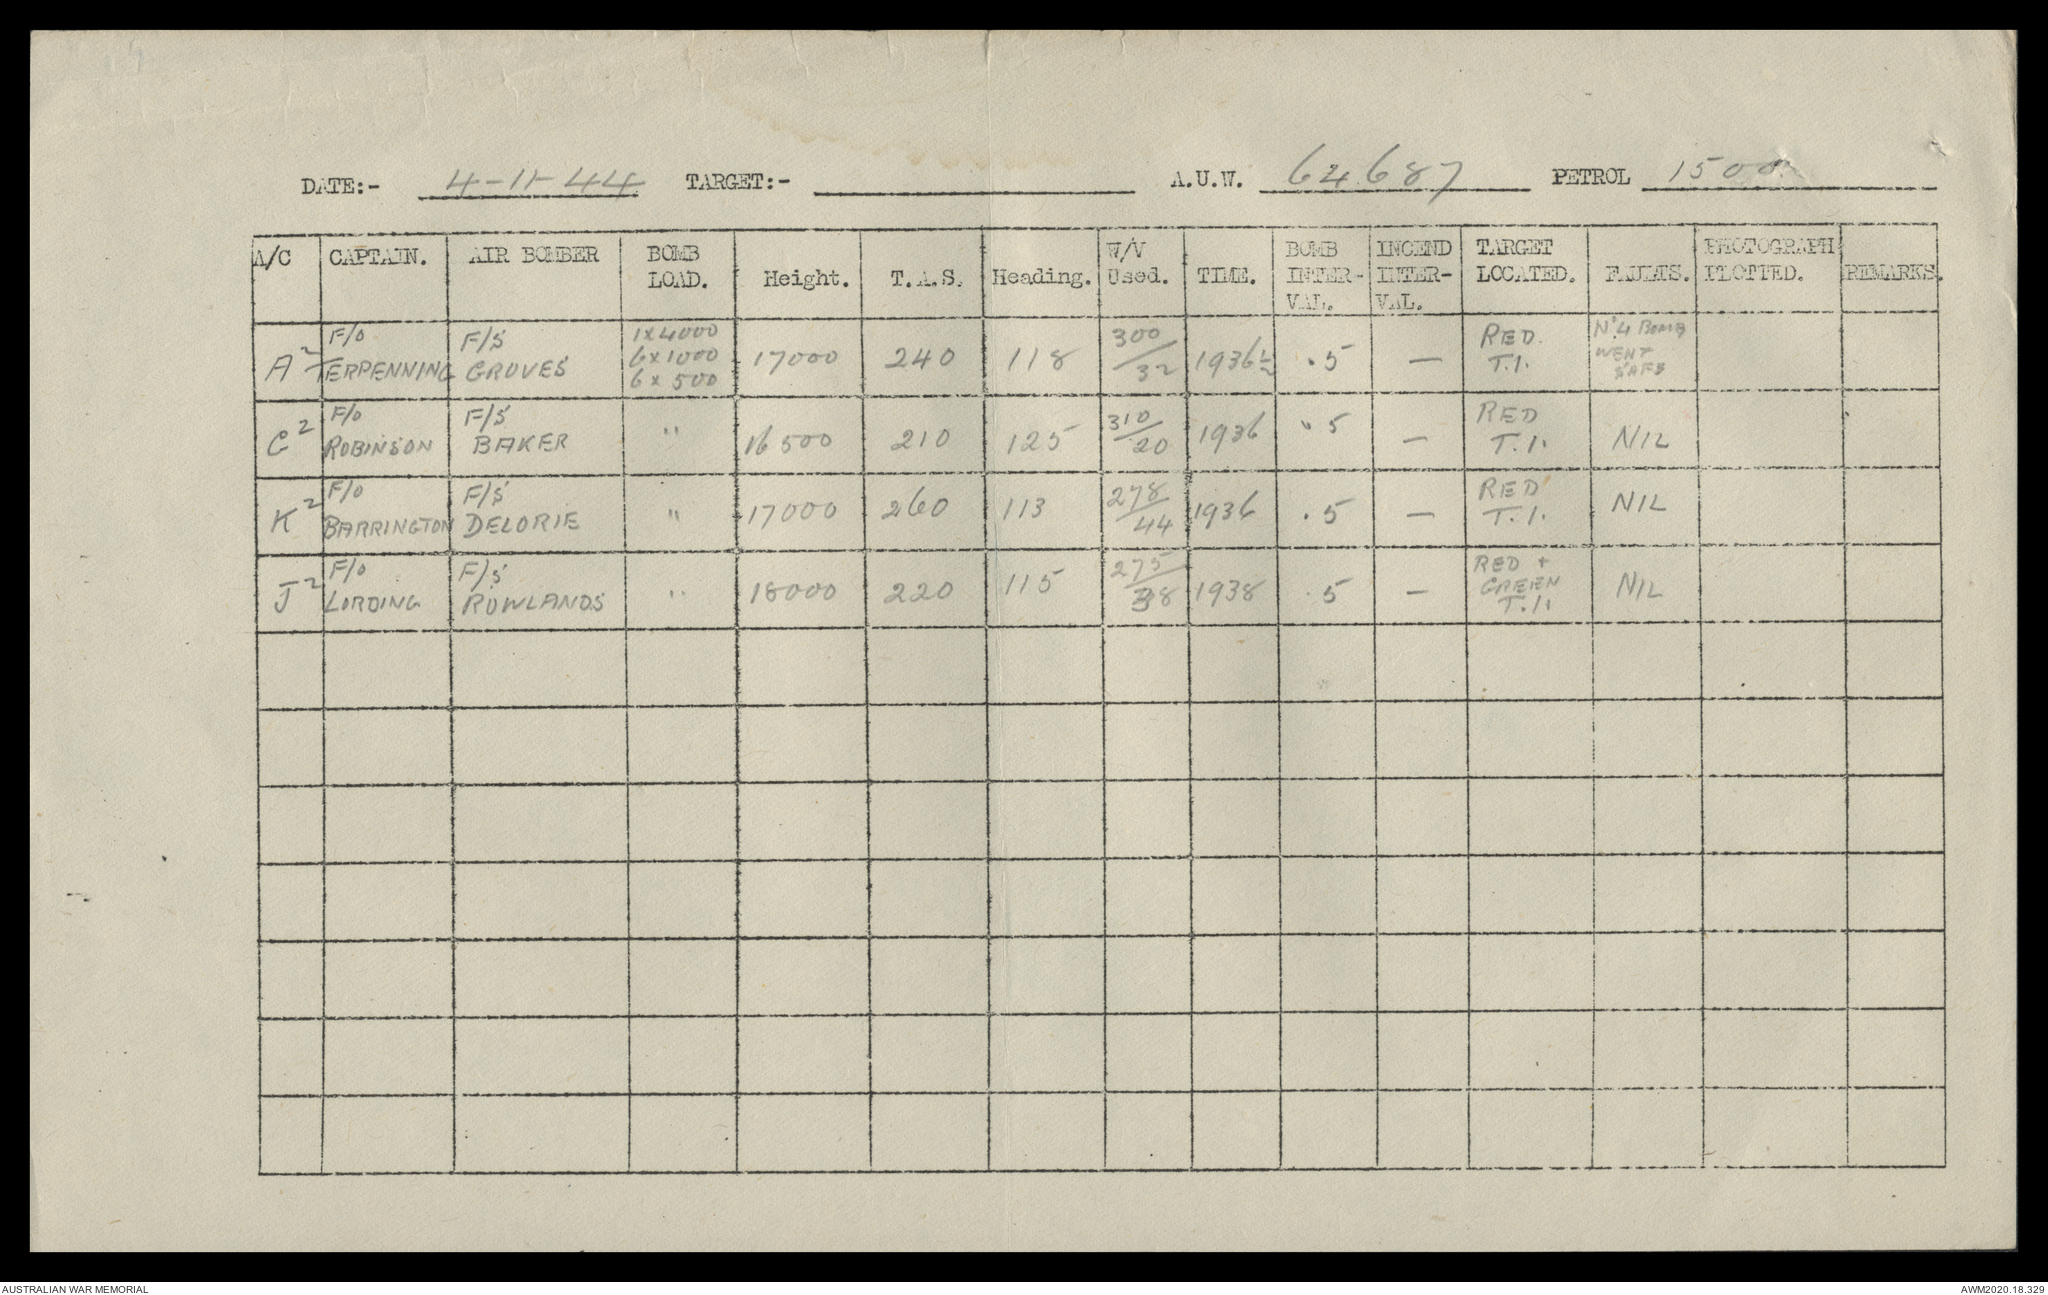 DATE:- 4-11-44 TARGET:- A.U.W. 64687 PETROL 1500
A/C CAPTAIN. AIR BOMBER BOMB LOAD. Height. T.A.S. Heading. W/V Used. TIME. BOMB INTER-VAL. INCEND INTER-VAL. TARGET LOCATED. FAULTS. PHOTOGRAPH PLOTTED. REMARKS.
A2 F/O TERPENNING F/S GROVES 1x4000 6x1000 6x500 17000 240 118 300/32 1936½ .5 — RED T.I. No 4 BOMB WENT SAFE
C2 F/O ROBINSON F/S BAKER " 16500 210 125 310/20 1936 .5 — RED T.I. NIL
K2 F/O BARRINGTON F/S DELORIE " 17000 260 113 278/44 1936 .5 — RED T.I. NIL
J2 F/O LORDING F/S ROWLANDS " 18000 220 115 275/38 1938 .5 — RED + GREEN T.I. NIL
AUSTRALIAN WAR MEMORIAL AWM2020.18.329